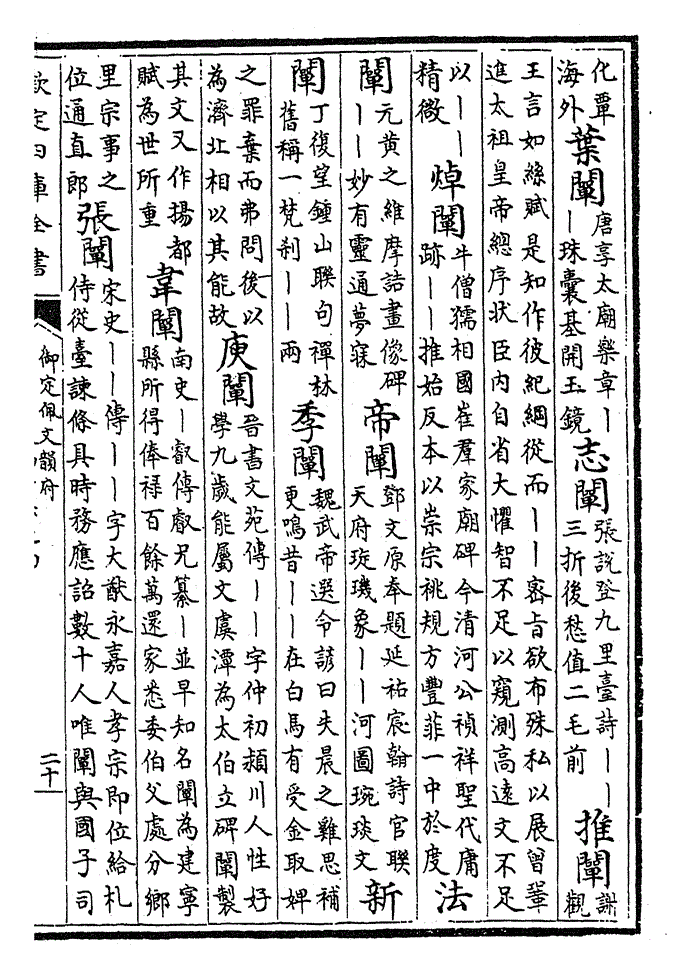 化覃
海外
葉闡
唐享太廟樂章｜
｜珠囊基開玉鏡
志闡
張說登九里臺詩｜｜
三折後愁值二毛前
推闡
謝
觀
王言如絲賦是知作彼紀綱從而｜｜密旨欲布殊私以展曾鞏
進太祖皇帝總序狀臣內自省大懼智不足以窺測高遠文不足
以｜｜
精微
焯闡
牛僧孺相國崔羣家廟碑今清河公禎祥聖代庸
跡｜｜推始反本以崇宗祧規方豐菲一中於度
法
闡
元黃之維摩詰畫像碑
｜｜妙有靈通夢寐
帝闡
鄧文原奉題延祐宸翰詩官聯
天府琁璣象｜｜河圖琬琰文
新
闡
丁復望鍾山聯句禪林
舊稱一梵刹｜｜兩
季闡
魏武帝選令諺曰失晨之雞思補
更鳴昔｜｜在白馬有受金取婢
之罪棄而弗問後以
為濟北相以其能故
庾闡
晉書文苑傳｜｜字仲初潁川人性好
學九歲能屬文虞潭為太伯立碑闡製
其文又作揚都
賦為世所重
韋闡
南史｜叡傳叡兄纂｜並早知名闡為建寧
縣所得俸祿百餘萬還家悉委伯父處分鄉
里宗事之
位通直郎
張闡
宋史｜｜傳｜｜字大猷永嘉人孝宗即位給札
侍從臺諫條具時務應詔數十人唯闡與國子司
欽定四庫全書
御定佩文韻府
二十